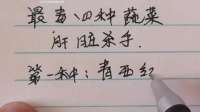 最毒的四种蔬菜
肝脏杀手.
第一种：青西红